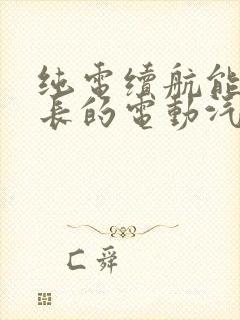 纯電續航能
長的電動汽
匚舜